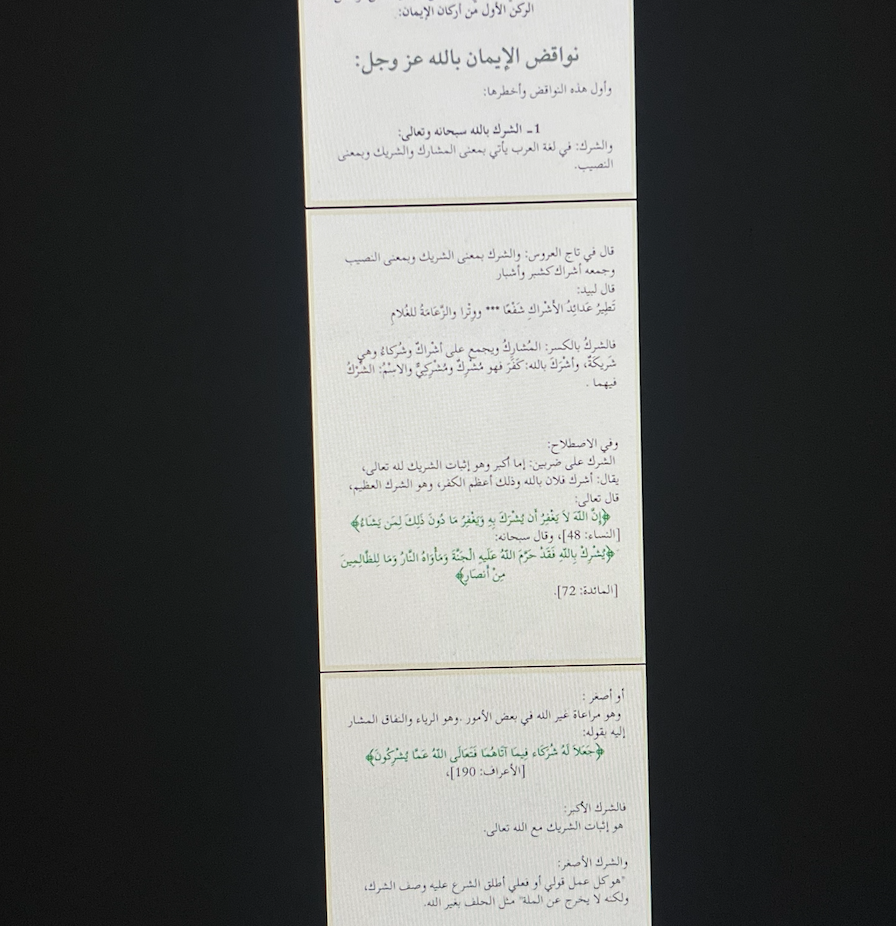 الركن الأول من أركان الإيمان:
نواقض الإيمان بالله عز وجل:
وأول هذه النواقض وأخطرها:
1- الشرك بالله سبحانه وتعالى:
والشرك: في لغة العرب يأتي بمعنى المشارك والشريك وبمعنى
النصيب.
قال في تاج العروس: والشرك بمعنى الشريك وبمعنى النصيب
وجمعه أشراك كشبر وأشبار
قال لبيد:
تَطِيرُ عَدائِدُ الأشْراكِ شَفْعًا *** ووِتْرا والزَّعَامَةُ للغُلامِ
فالشركُ بالكسر: المُشارِكُ ويجمع على أشْراكٌ وشُركاءُ وهي
شَرِيكَةٌ، وأشْرَكَ بالله: كَفَرَ فهو مُشْرِكٌ ومُشْرِكِيٌّ والاسْمُ: الشِّرْكُ
فيهما .
وفي الاصطلاح:
الشرك على ضربين: إما أكبر وهو إثبات الشريك لله تعالى،
يقال: أشرك فلان بالله وذلك أعظم الكفر، وهو الشرك العظيم،
قال تعالى:
﴿إِنَّ اللّهَ لاَ يَغْفِرُ أَن يُشْرَكَ بِهِ وَيَغْفِرُ مَا دُونَ ذَلِكَ لِمَن يَشَاءُ﴾
[النساء: 48]، وقال سبحانه:
﴿يُشْرِكْ بِاللّهِ فَقَدْ حَرَّمَ اللّهُ عَلَيهِ الْجَنَّةَ وَمَأْوَاهُ النَّارُ وَمَا لِلظَّالِمِينَ
مِنْ أَنصَارٍ﴾
[المائدة: 72].
أو أصغر :
وهو مراعاة غير الله في بعض الأمور .وهو الرياء والنفاق المشار
إليه بقوله:
﴿جَعَلاَ لَهُ شُرَكَاء فِيمَا آتَاهُمَا فَتَعَالَى اللّهُ عَمَّا يُشْرِكُونَ﴾
[الأعراف: 190]،
فالشرك الأكبر:
هو إثبات الشريك مع الله تعالى.
والشرك الأصغر:
"هو كل عمل قولي أو فعلي أطلق الشرع عليه وصف الشرك،
ولكنه لا يخرج عن الملة" مثل الحلف بغير الله.